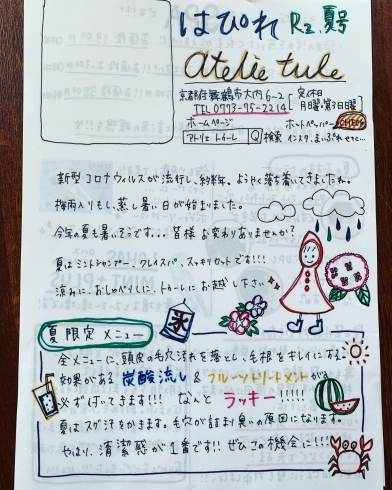 はぴれ R2.夏号
atelie tule
京都府舞鶴市大内6-2
TEL 0773-75-2214
定休日
月曜・第3日曜
ホームページ
アトリエ トゥール Q 検索
ホットペッパー
インスタ、まいぷれ、せてに…
新型コロナウィルスが流行し、約半年。ようやく落ち着いてきましたね。
梅雨入りもし、蒸し暑い日が始まりました。
今年の夏も暑いそうです… 皆様お変わりありませんか？
夏はミントシャンプー、クレイスパ、スッキリセットです!!!
涼みに、おしゃべりしに、トゥールにお越し下さい
氷
夏限定メニュー
全メニューに、頭皮の毛穴汚れを落とし、毛根をキレイにする
効果がある 炭酸流し & フルーツトリートメントが
必ずついてきます!!! なんと ラッキー !!!!!
夏はスグ汗をかきます。毛穴が詰まり臭いの原因になります。
やはり、清潔感が1番です!! ぜひこの機会に!!!